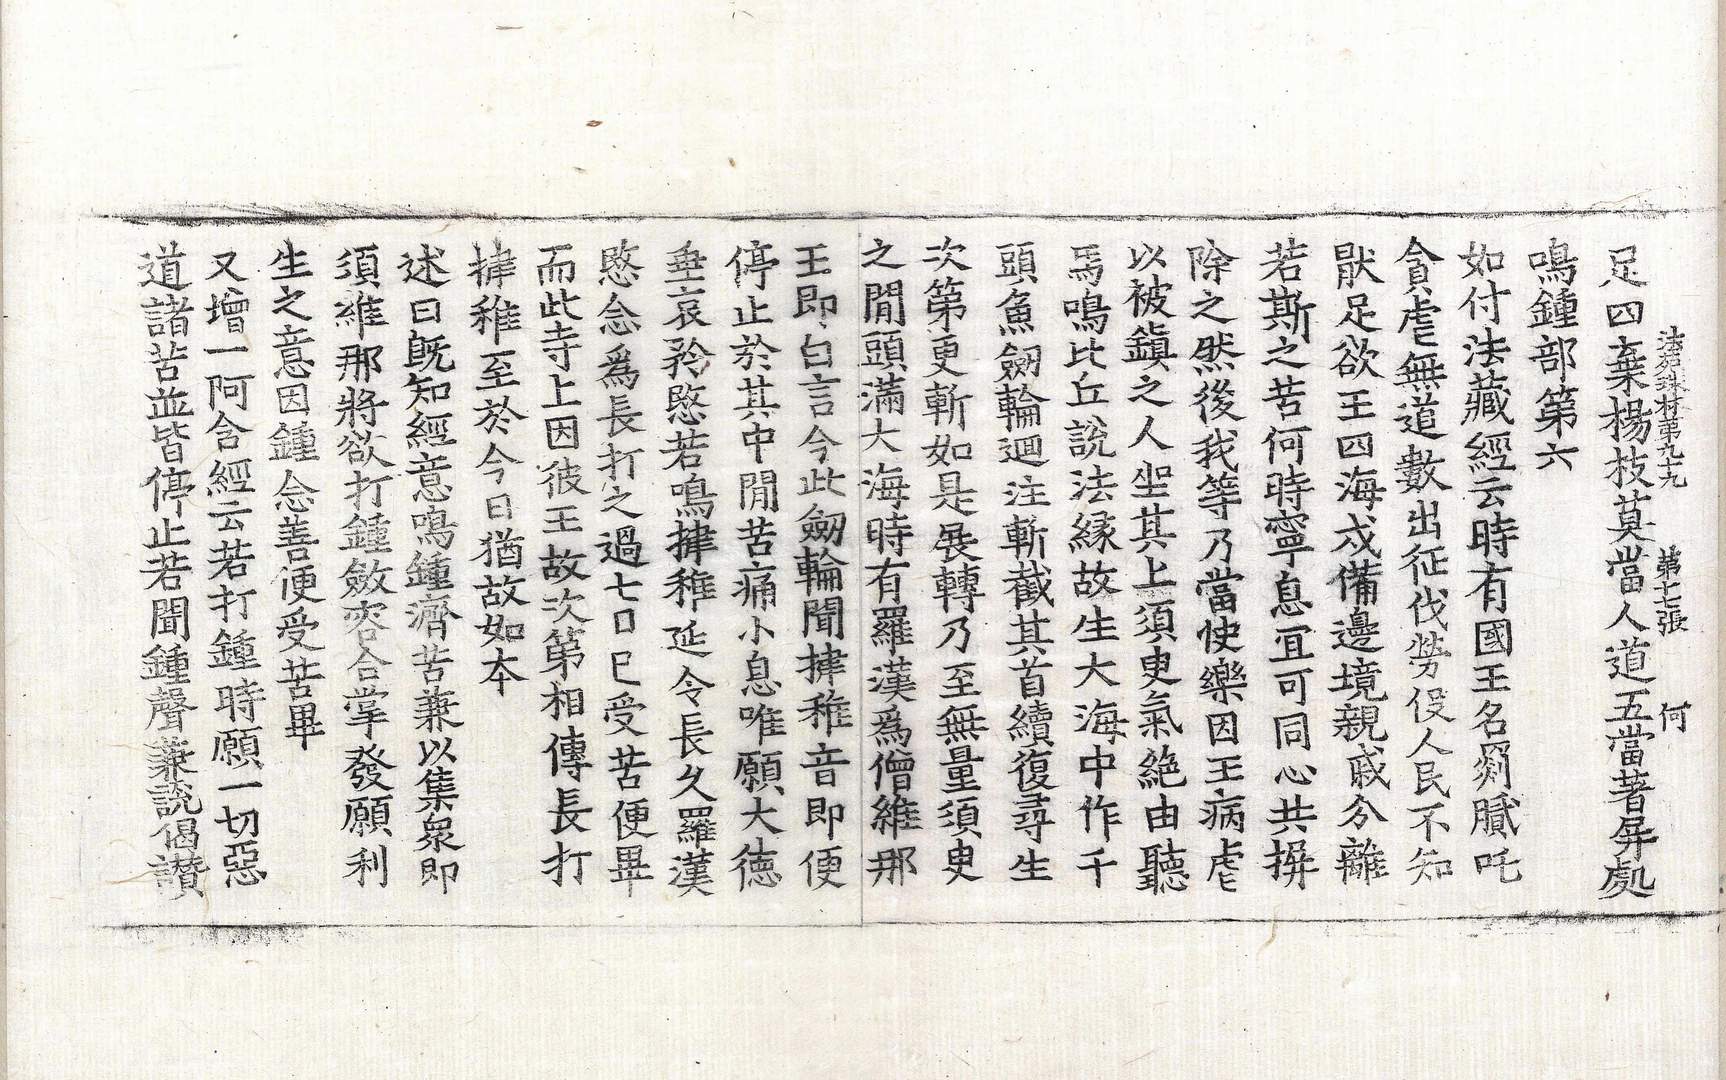 法苑珠林第九十九 第十七張 何
足四棄楊枝莫當人道五當著屛處
鳴鍾部第六
如付法藏經云時有國王名罽膩吒
貪虐無道數出征伐勞役人民不知
猒足欲王四海戍備邊境親戚分離
若斯之苦何時寧息宜可同心共摒
除之然後我等乃當快樂因王病虐
以被鎭之人坐其上須臾氣絶由聽
馬鳴比丘說法縁故生大海中作千
頭魚劒輪迴注斬截其首續復尋生
次第更斬如是展轉乃至無量須臾
之閒頭滿大海時有羅漢爲僧維那
王即白言今此劒輪聞揵稚音即便
停止於其中閒苦痛小息唯願大德
垂哀矜愍若鳴揵稚延令長久羅漢
愍念爲長打之過七日已受苦便畢
而此寺上因彼王故次第相傳長打
揵稚至於今日猶故如本
述曰旣知經意鳴鍾濟苦兼以集衆即
須維那將欲打鍾斂容合掌發願利
生之意因鍾念善便受苦畢
又增一阿含經云若打鍾時願一切惡
道諸苦並皆停止若聞鍾聲兼說偈讚